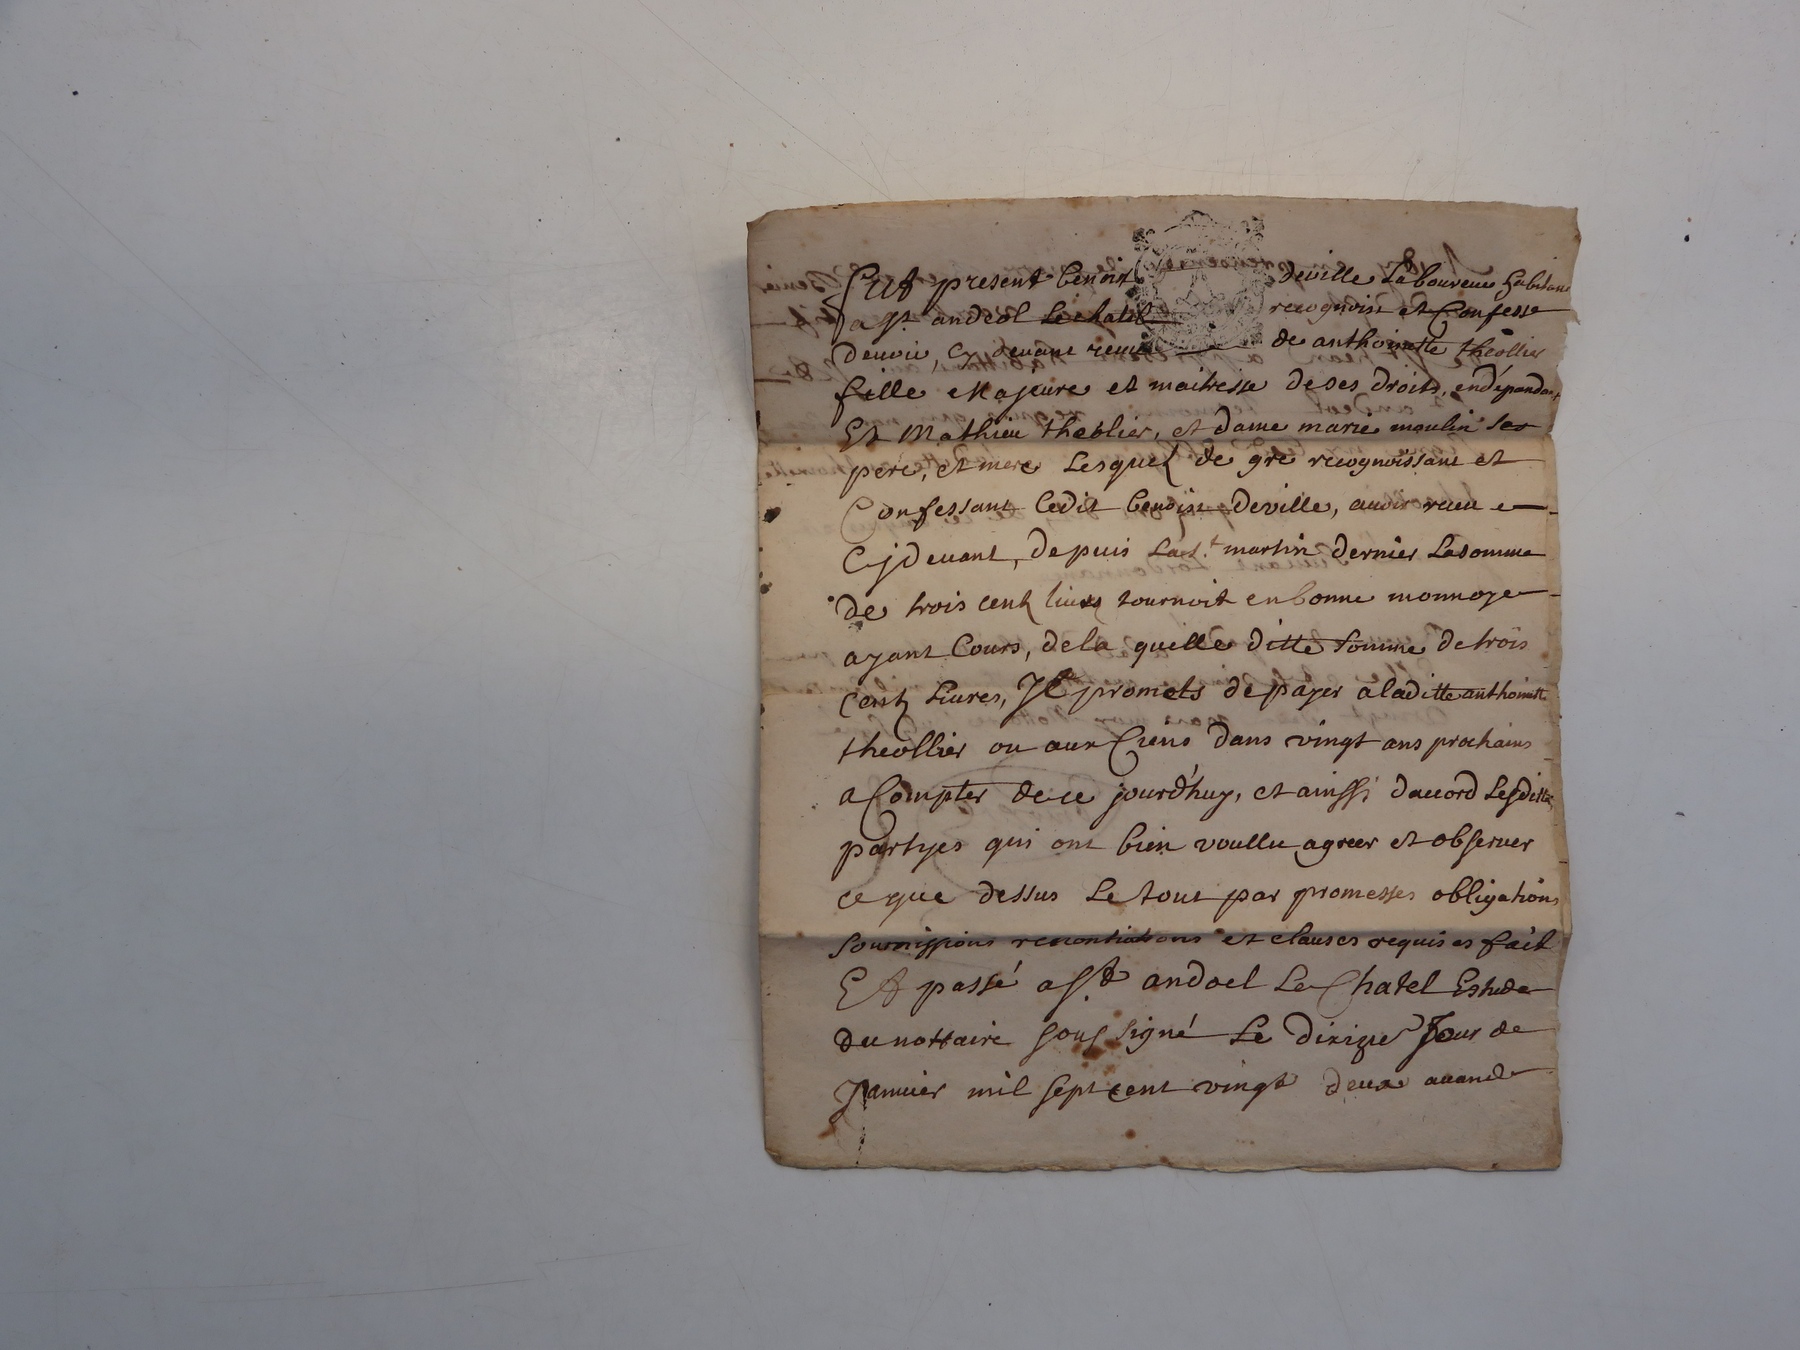 Fut present benoit deville Laboureur habitant
a St. andeol Lechatel recognoist et Confesse
devoir, cy devant receu de anthoinette theollier
fille majeure et maitresse de ses droits, endépandant
Et Mathieu theollier, et dame marie moulin ses
pere, et mere Lesquelz de gre recognoissant et
Confessant Ledit benoist deville, avoir receu
Cy devant, depuis La St. martin dernier La somme
de trois centz livres tournoit en bonne monnoye
ayant Cours, de la quelle ditte somme de trois
centz Livres, Jl promets de payer a laditte anthoinette
theollier ou aux Ciens dans vingt ans prochains
a Compter de ce jourd'huy, et ainssi daccord Lesdittes
partyes qui ont bien voullu agreer et observer
ce que dessus Le tout par promesses obligations
soumissions renontiations et clauses requises fait
Et passé a St andoel Le Chatel Estude
du nottaire sous signé Le Jour de
Janvier mil sept cent vingt deux avant